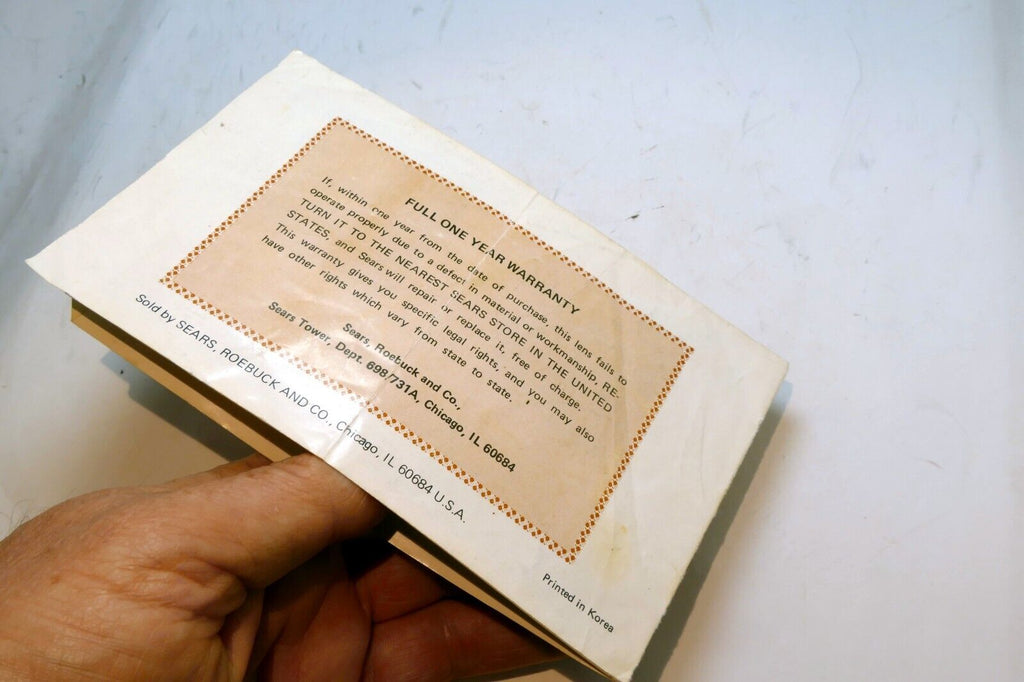 FULL ONE YEAR WARRANTY
If, within one year from the date of purchase, this lens fails to
operate properly due to a defect in material or workmanship, RE-
TURN IT TO THE NEAREST SEARS STORE IN THE UNITED
STATES, and Sears will repair or replace it, free of charge.
This warranty gives you specific legal rights, and you may also
have other rights which vary from state to state.
Sears, Roebuck and Co.,
Sears Tower, Dept. 698/731A, Chicago, IL 60684
Sold by SEARS, ROEBUCK AND CO., Chicago, IL 60684 U.S.A.
Printed in Korea